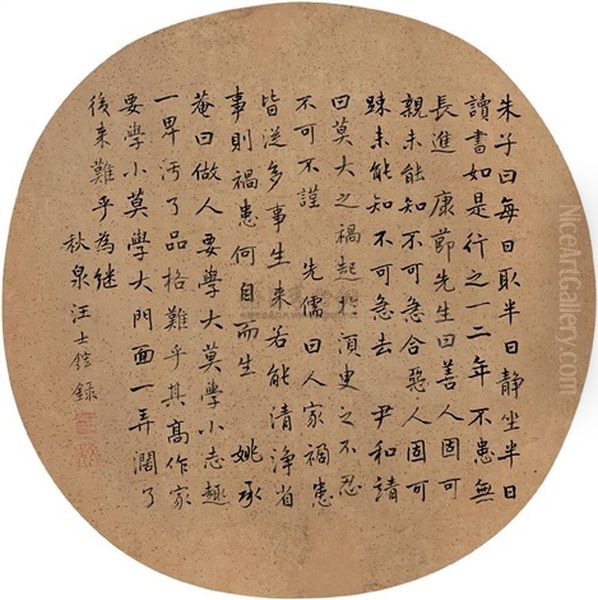 朱子曰每日取半日静坐半日
讀書如是行之一二年不患無
長進康節先生曰善人固可
親未能知不可急合惡人固可
踈未能知不可急去 尹和靖
曰莫大之禍起於須臾之不忍
不可不謹 先儒曰人家禍患
皆從多事生来若能清淨省
事則禍患何自而生 姚承
菴曰做人要學大莫學小志趣
一卑汚了品格難乎其高作家
要學小莫學大門面一弄濶了
後来難乎為継
秋泉汪士鋐録
NiceArtGallery.com